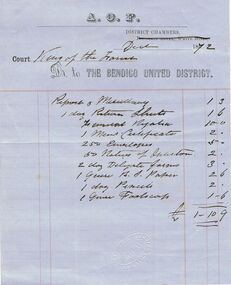 A. O. F.
DISTRICT CHAMBERS,
1872
Court King of the Forest
Dr. to THE BENDIGO UNITED DISTRICT.
Repost & Miscellany 1 3
1 doz Return Sheets 1 6
Funeral Register 10 0
1 Mem Certificate 2
250 Envelopes 5
50 Notices of 2
2 doz Delegate forms 3
1 Quire B. S. Paper 2 6
1 doz Pencils 2
1 Quire Foolscap 1 6
£1-10 9